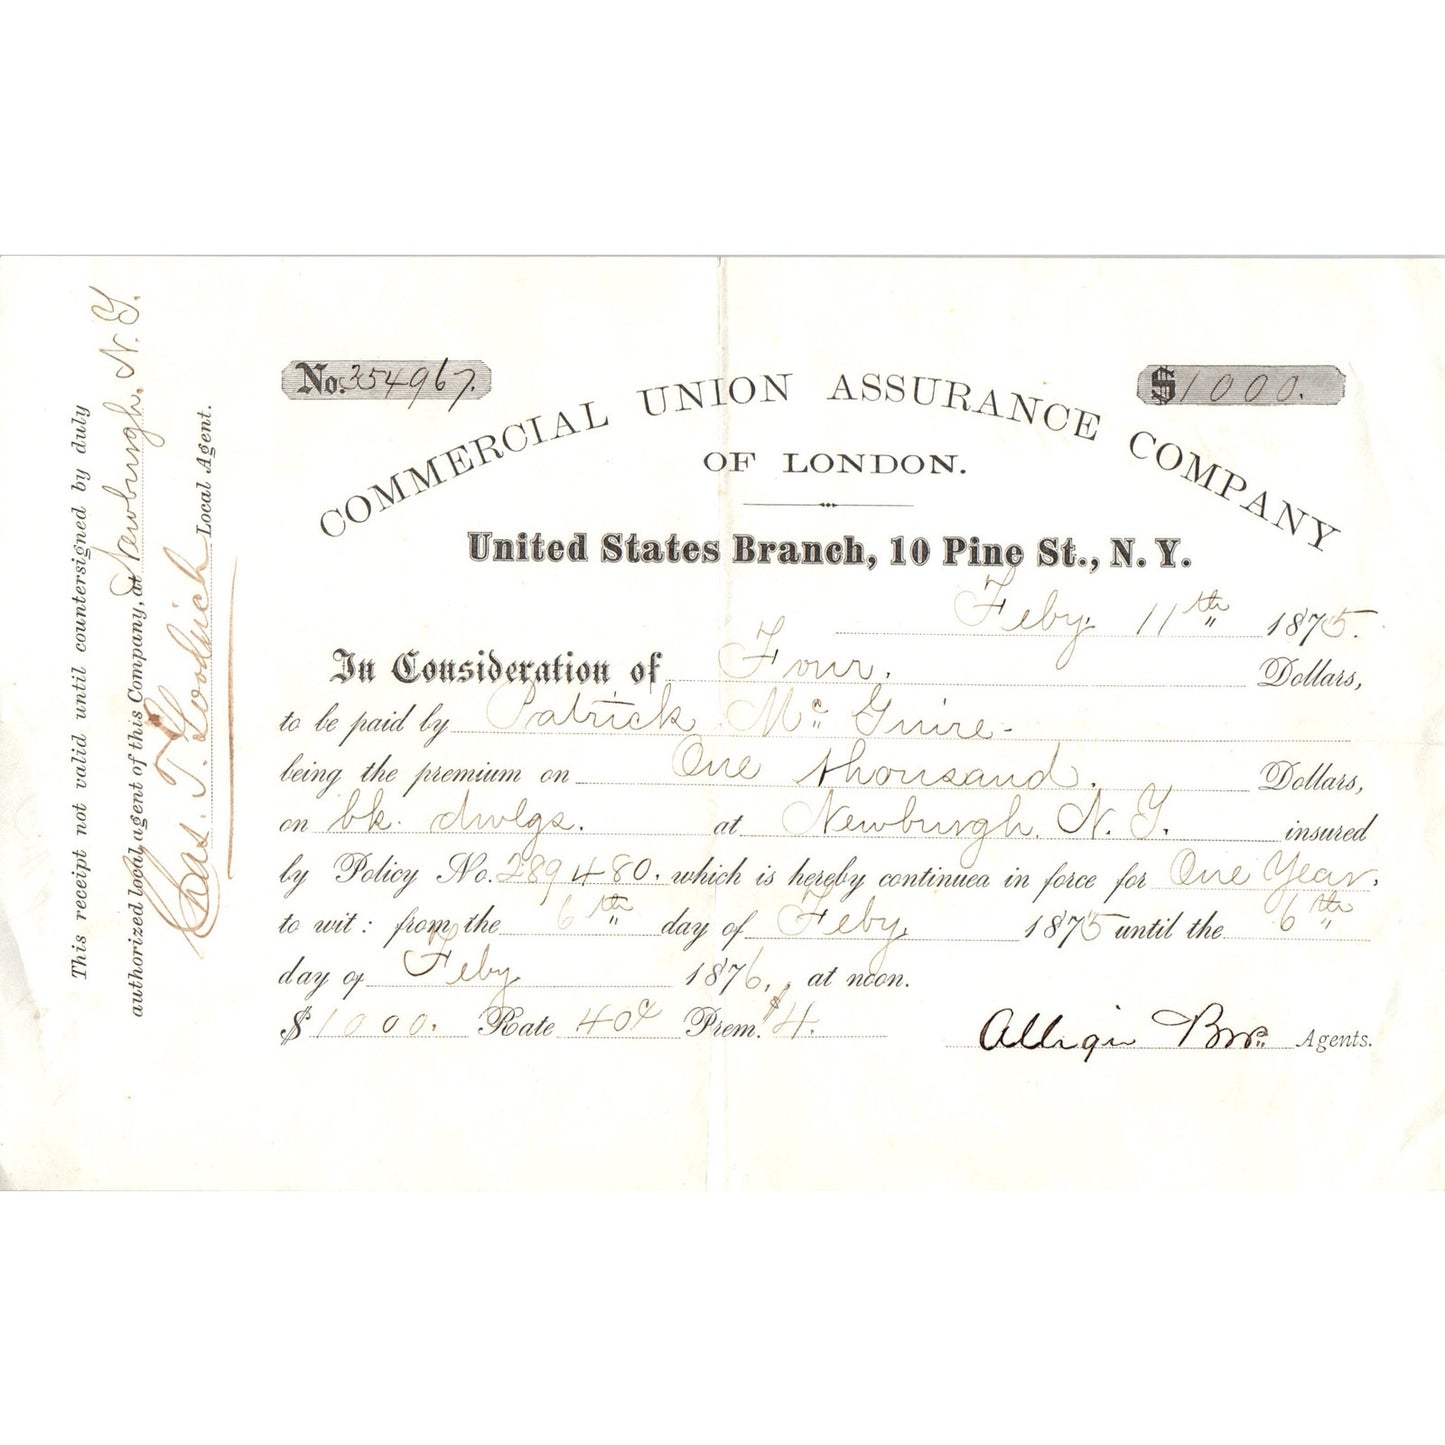 No. 354967.
$1000.
COMMERCIAL UNION ASSURANCE COMPANY
OF LONDON.
United States Branch, 10 Pine St., N. Y.
Feby. 11th 1875.
In Consideration of Four. Dollars,
to be paid by Patrick Mc Guire-
being the premium on One thousand. Dollars,
on bk. dwlgs. at Newburgh. N. Y. insured
by Policy No. 289480. which is hereby continued in force for One Year.
to wit: from the 6th day of Feby. 1875 until the 6th
day of Feby 1876, at noon.
$1000. Rate 40¢ Prem. $4.
Bros. Agents.
This receipt not valid until countersigned by duly
authorized local agent of this Company, at Newburgh. N. Y.
Chas. T. Goodrich Local Agent.